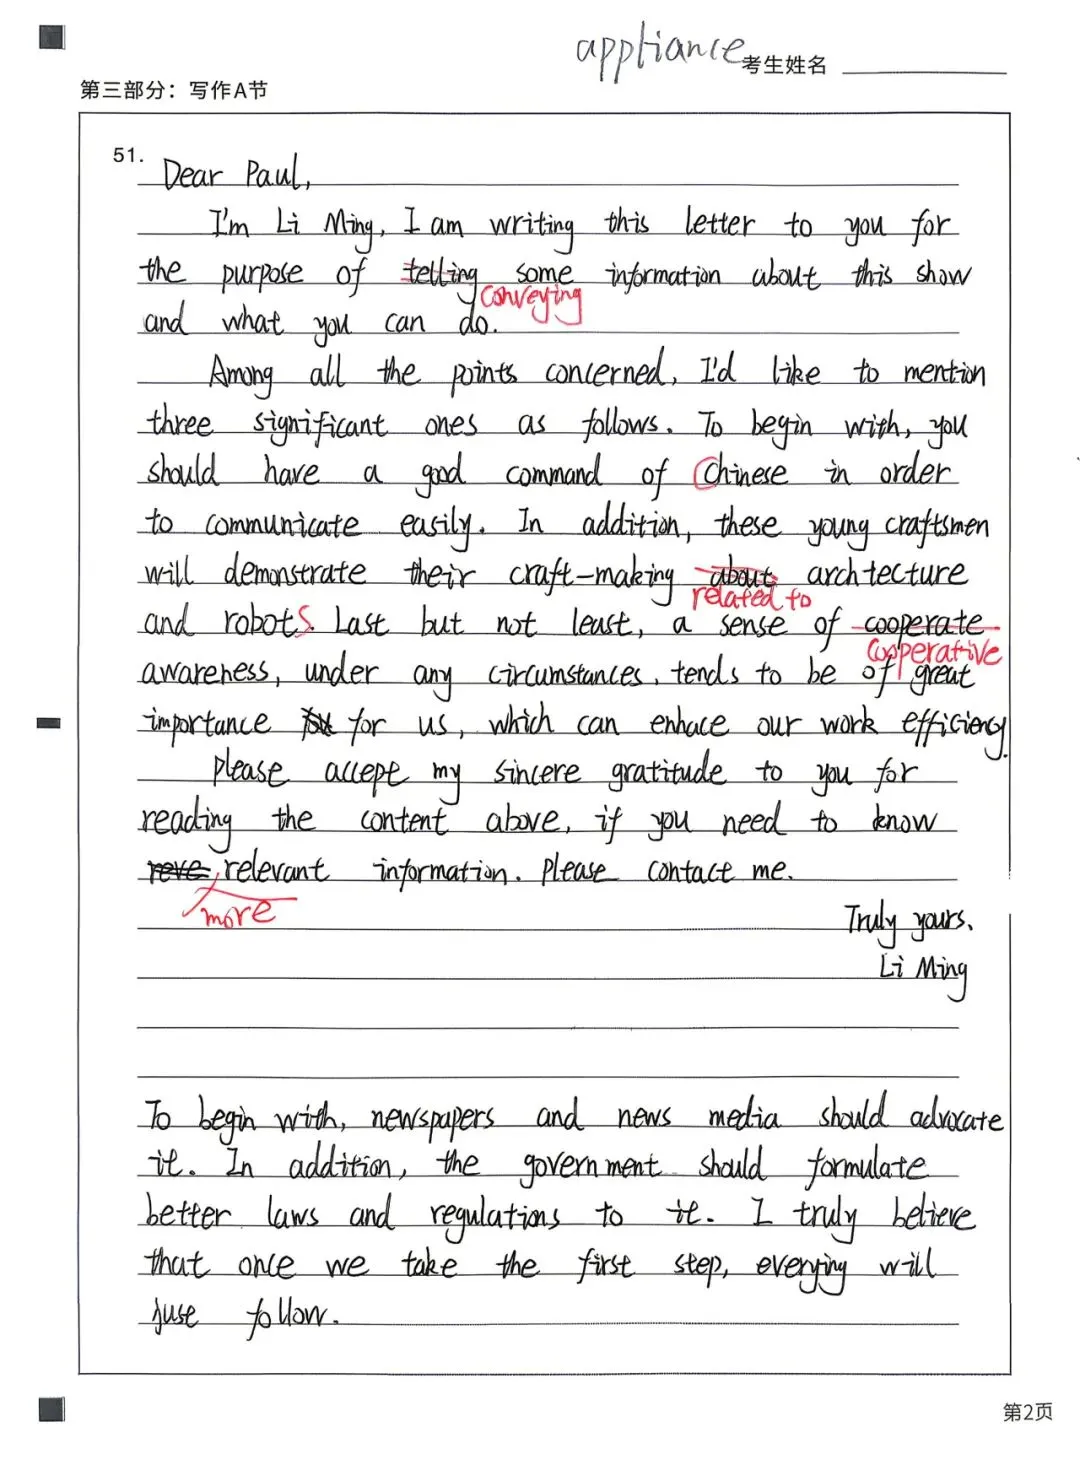 appliance
考生姓名
第三部分：写作A节
51.
Dear Paul,
I'm Li Ming, I am writing this letter to you for
the purpose of telling some information about this show
conveying
and what you can do.
Among all the points concerned, I'd like to mention
three significant ones as follows. To begin with, you
should have a good command of Chinese in order
to communicate easily. In addition, these young craftsmen
will demonstrate their craft-making about archtecture
related to
and robots. Last but not least, a sense of cooperate
cooperative
awareness, under any circumstances, tends to be of great
importance for us, which can enhace our work efficiency.
Please accept my sincere gratitude to you for
reading the content above, if you need to know
reve relevant information. Please contact me.
more
Truly yours,
Li Ming
To begin with, newspapers and news media should advocate
it. In addition, the government should formulate
better laws and regulations to it. I truly believe
that once we take the first step, everying will
just follow.
第2页